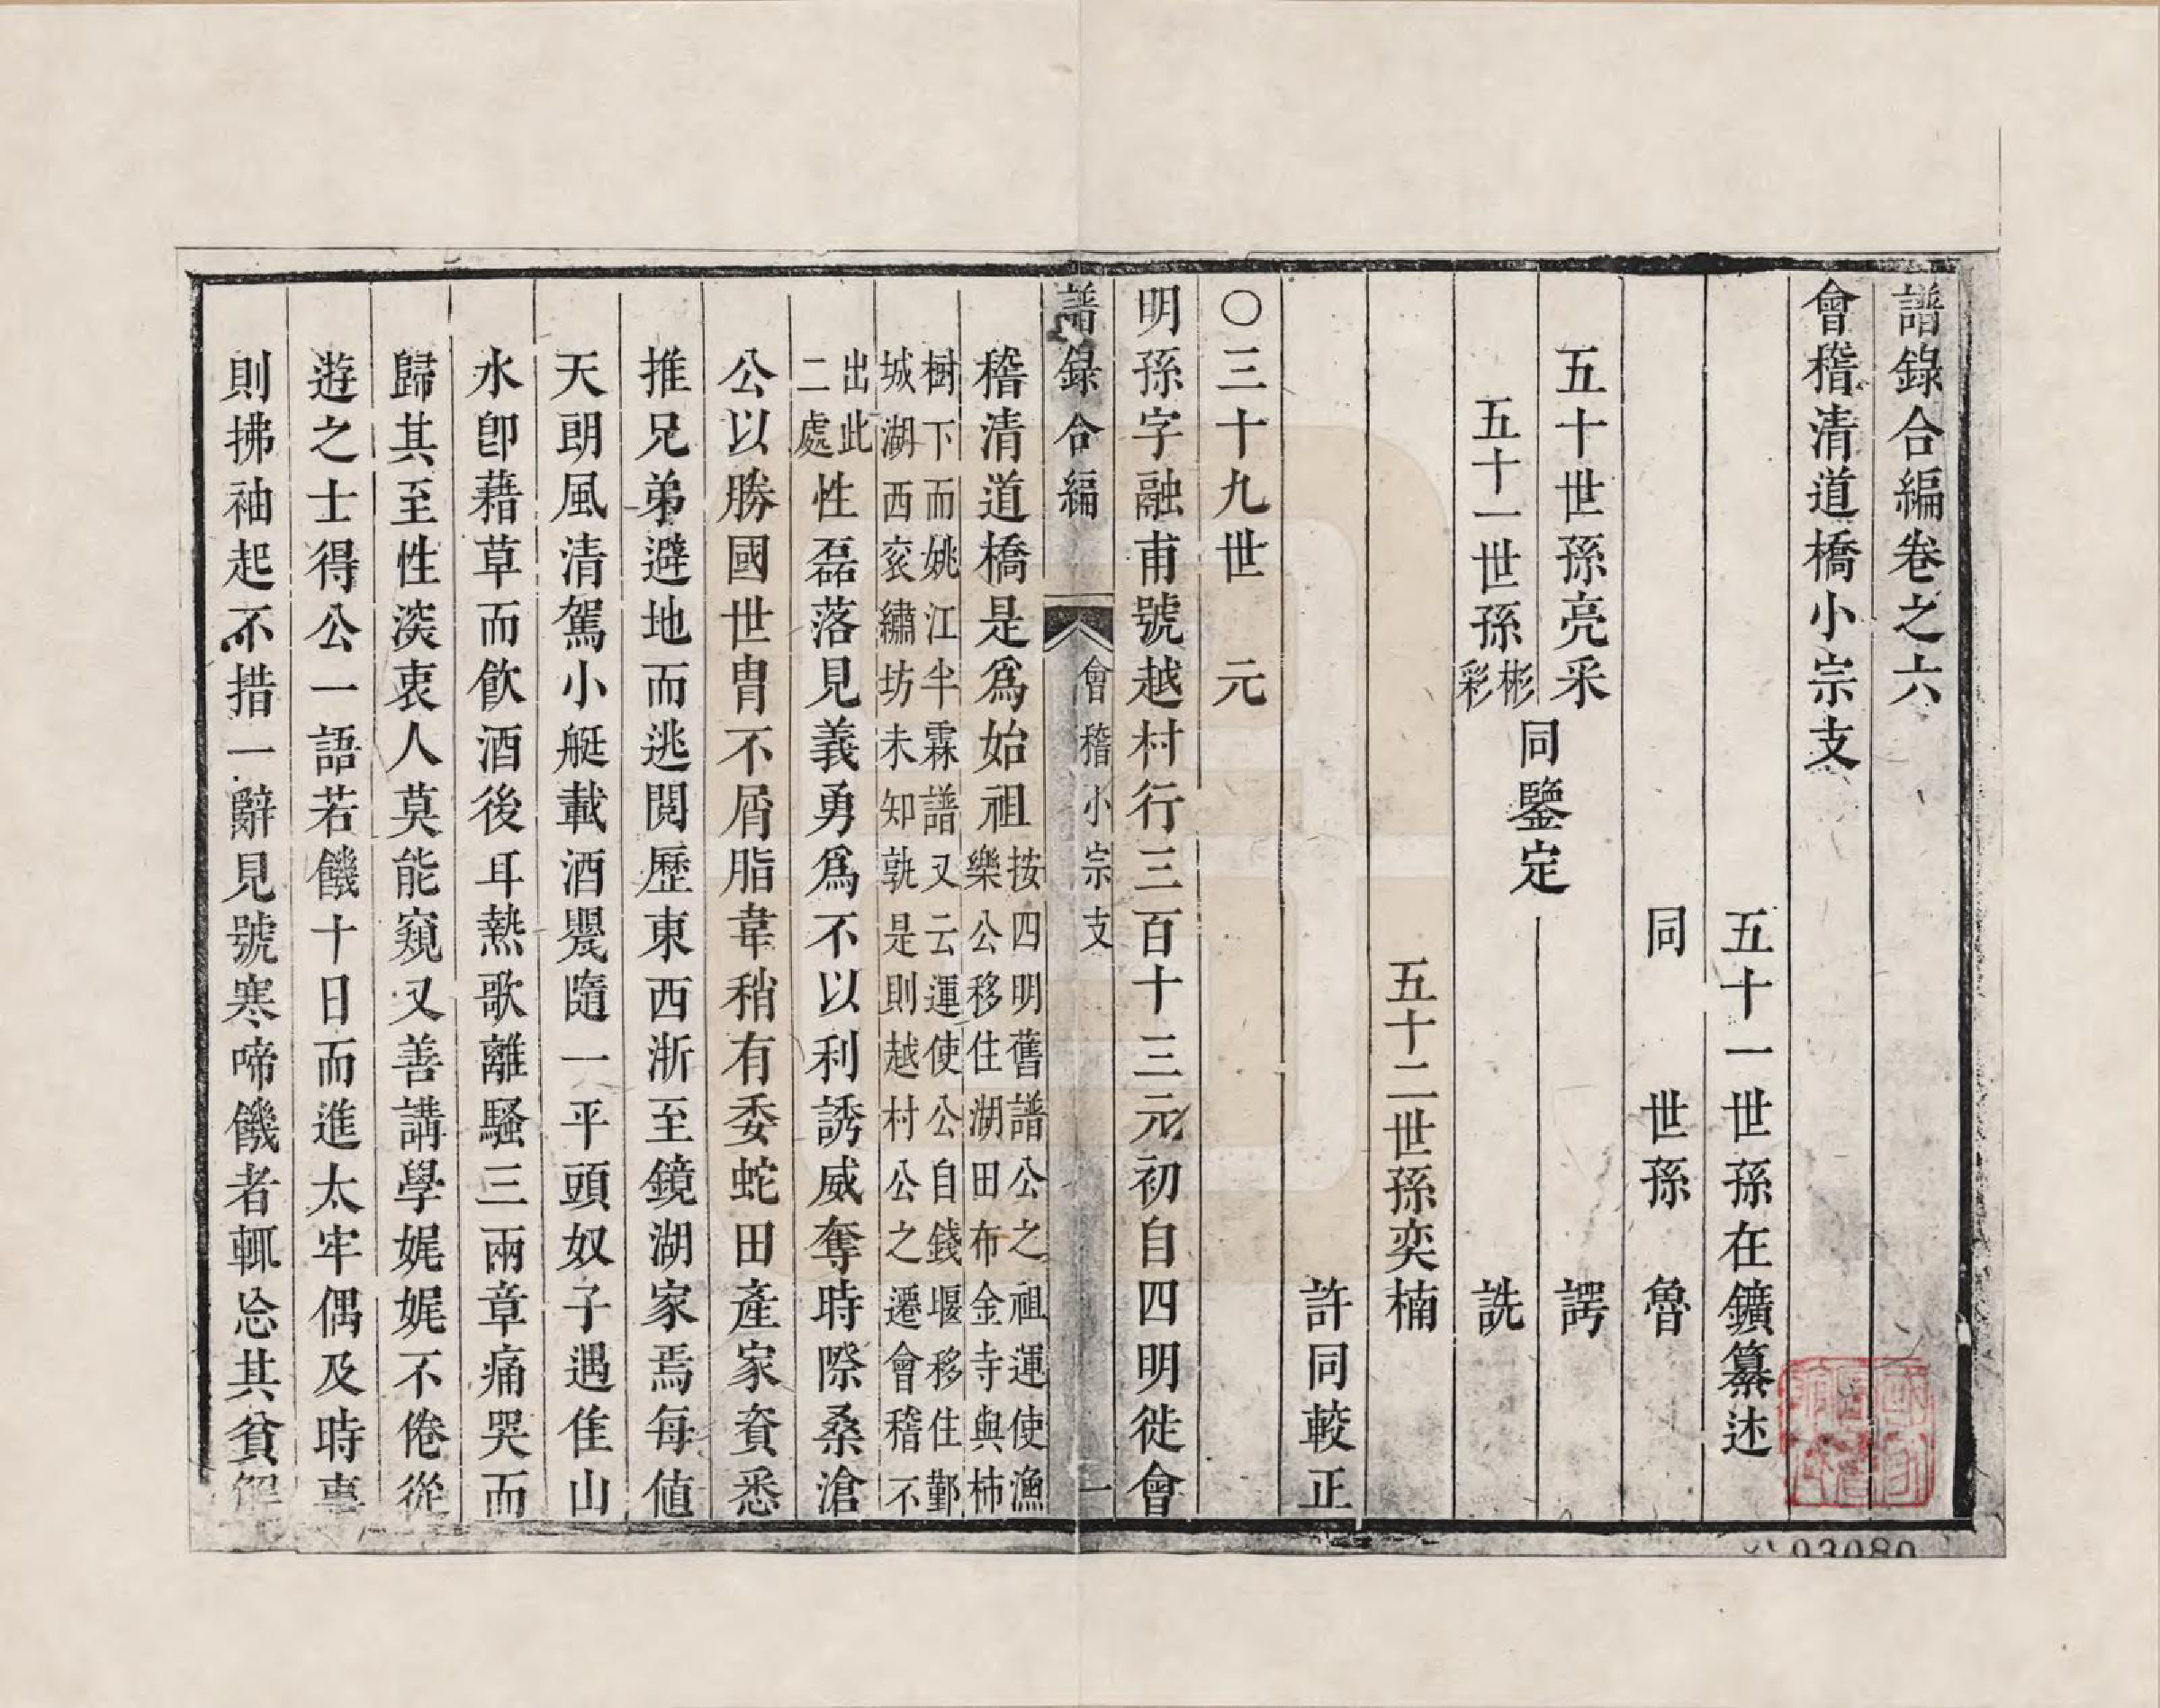 譜錄合編卷之六
會稽清道橋小宗支
五十一世孫在鑛纂述
同　世孫　魯
五十世孫亮采　諤
五十一世孫彬彩　詵
同鑒定
五十二世孫奕楠
許同較正
○三十九世　元
明孫字融甫號越村行三百十三元初自四明徙會
譜錄合編　會稽小宗支　一
稽清道橋是爲始祖
按四明舊譜公之祖運使漁
樂公移住湖田布金寺與柿
樹下而姚江半霖譜又云運使公自錢堰移住鄞
城湖西衮繡坊未知孰是則越村公之遷會稽不
出此
二處
性磊落見義勇爲不以利誘威奪時際桑滄
公以勝國世胄不屑脂韋稍有委蛇田產家資悉
推兄弟避地而逃閱歷東西浙至鏡湖家焉每値
天朗風清駕小艇載酒甖隨一平頭奴子遇佳山
水卽藉草而飮酒後耳熱歌離騷三兩章痛哭而
歸其至性深衷人莫能窺又善講學娓娓不倦從
遊之士得公一語若饑十日而進太牢偶及時事
則拂袖起不措一辭見號寒啼饑者輒忘其貧解